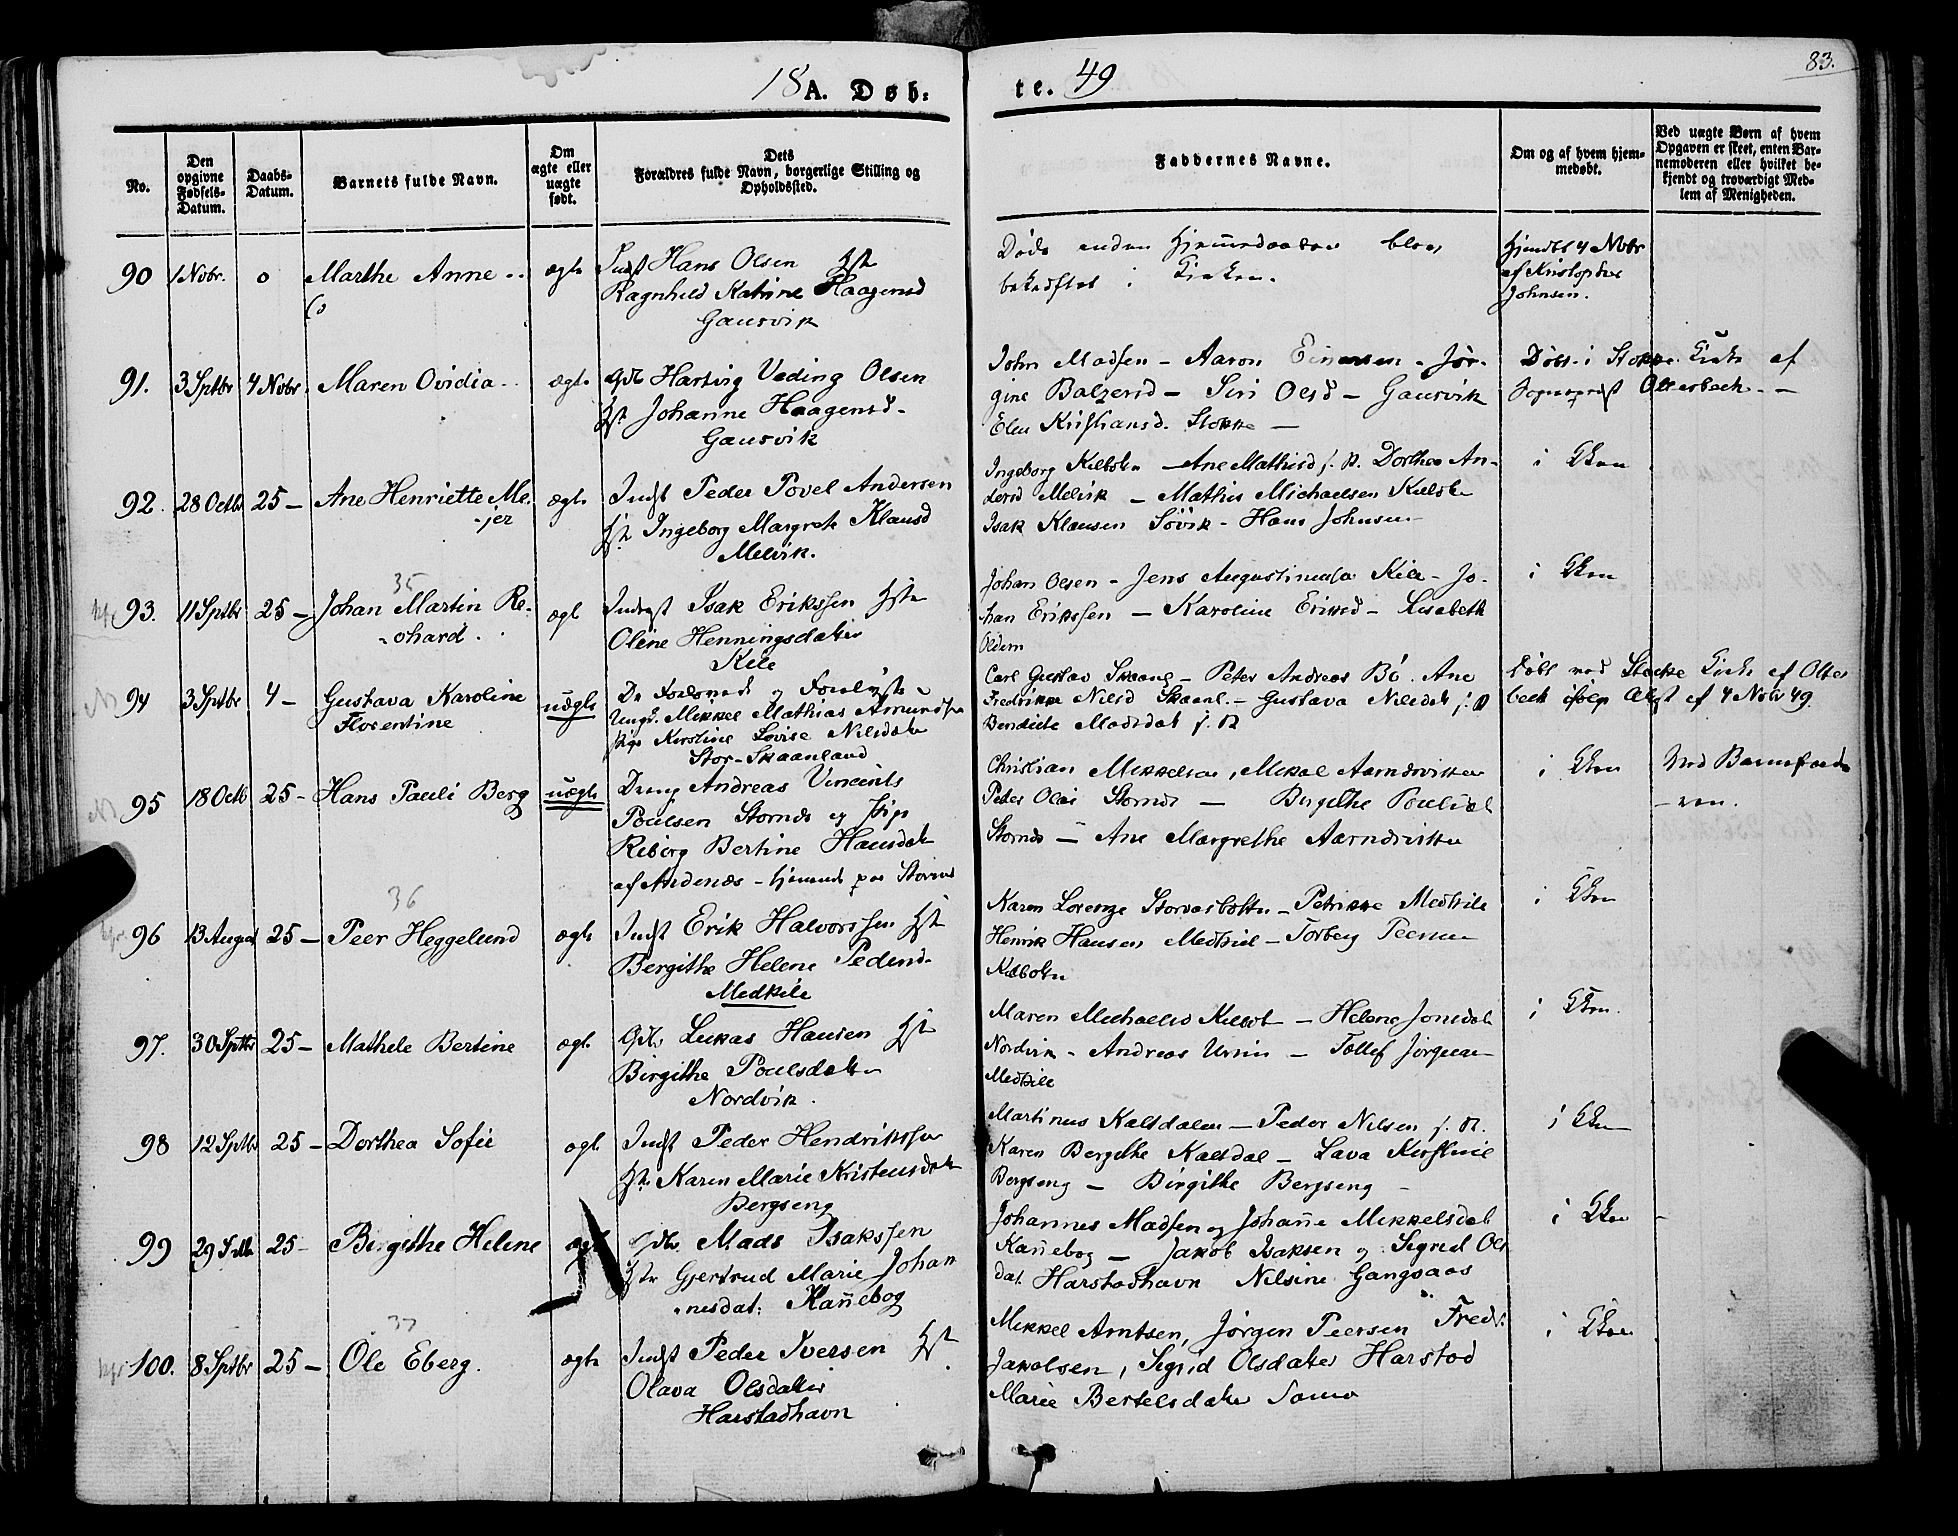 18 A. Døb: te. 49
83.
No.
Den opgivne Fødsels-Datum.
Daabs-Datum.
Barnets fulde Navn.
Om ægte eller uægte født.
Dets Forældres fulde Navn, borgerlige Stilling og Opholdssted.
Faddernes Navne.
Om og af hvem hjemmedøbt.
Ved uægte Børn af hvem Opgaven er skeet, enten Barnemoderen eller hvilket bekjendt og troværdigt Medlem af Menigheden.
90 1 Nvbr. 0 Marthe Anne ægte Hans Olsen Hst
Ragnhild Katrine Haagensd
Gausvik
Døde inden
i Kirken.
4 Nvbr
af Kristopher
Johnsen.
91. 3 Sptbr 4 Nvbr Maren Ovidia ægte Gdb Hartvig Veding Olsen
Hst Johanne Haagensd
Gausvik
John Madsen - Aaron - Jør-
gine Balzersd - Siri Olsd - Gausvik
Elen Kristiansd. Stokke -
Døbt i Stokke Kirke af
Sognepræst
92. 28 Octb 25 - Ane Henriette Me-
jer
ægte Indst Peder Povel Andersen
Hst Ingeborg Margrete Klausd
Melvik.
Ingeborg - Ane Mathisd s. st. Dorthea An-
dersd Melvik - Mathis Michaelsen
Isak Klausen Sövik - Hans Johnsen
i Kken
93. 11 Sptbr 25 - Johan Martin Re-
chard.
35
ægte Isak Erikssen Hst
Oline Henningsdatter
Kile
Johan Olsen - Jens Kile - Jo-
han Erikssen - Karoline Eriksd - Lisabeth
i Kken
94 3 Sptbr 4 - Gustava Karoline
Florentine
uægte
Ungd. Mikkel Mathias Amundsen
Pige Karoline Lovise Nilsdatter
Stor-Skaanland
Carl Gustav Skaanl - Peter Andreas Bö. Ane
Fredrikke Nilsd Skaanl. - Gustava Nilsdat s. st
Bendicte Madsdat s. st
Döbt ved Stokke Kirke af
af 4 Nvbr 49.
95 18 Octb 25 - Hans Pauli Berg uægte Dreng Andreas Vincents
Poulsen Stornes og Pige
Reberg Bertine Hansdat
af Andenæs - paa Stornes
Christian Mikkelsen, Mikal
Peter Olai Stornes - Birgithe Poulsdat
Stornes - Ane Margrethe
i Kken
Ved Barnefade-
ren.
96 13 August 25 - Peer Heggelund
36
ægte Indst Erik Halvorssen Hst
Bergithe Helene Pedersd.
Medkile
Karen Lorenze - Petrikke Medkile
Henrik Hansen Medkiel - Torberg Peersen
i Kken
97. 30 Sptbr 25 - Mathele Bertine ægte Gdb Lukas Hansen Hst
Birgithe Poulsdatter
Nordvik.
Maren Michaelsd - Helene Jonsdat
Nordvik - Andreas - Tollef Jörgensen
Medkile
i Kken.
98 12 Sptbr 25 - Dorthea Sofie ægte Indst Peder Hendrikssen
Hst Karen Marie Kristensdatter
Bergseng
Martinus Kaltdalen - Peder Nilsen s. st.
Karen Bergethe Kaltdal - Lava Kirstine
Bergseng - Birgithe Bergseng -
i Kken
99 29 25 - Birgithe Helene ægte Gdb Mads Isakssen
Hst Gjertrud Marie Johan
nesdat: Kannebog
Johannes Madsen og Johanne Mikkelsdat
Kannebog - Jakob Isaksen og Sigrid Ols
dat Harstadhavn Nilsine Gangsaas
i Kken
100. 8 Sptbr 25 - Ole Eberg.
37
ægte Indst Peder Iversen Hst
Olava Olsdatter
Harstadhavn
Mikkel Arntsen, Jörgen Peersen Fredr.
Jakobsen, Sigrid Olsdatter Harstad
Marie Bertelsdatter Sama
i Kken